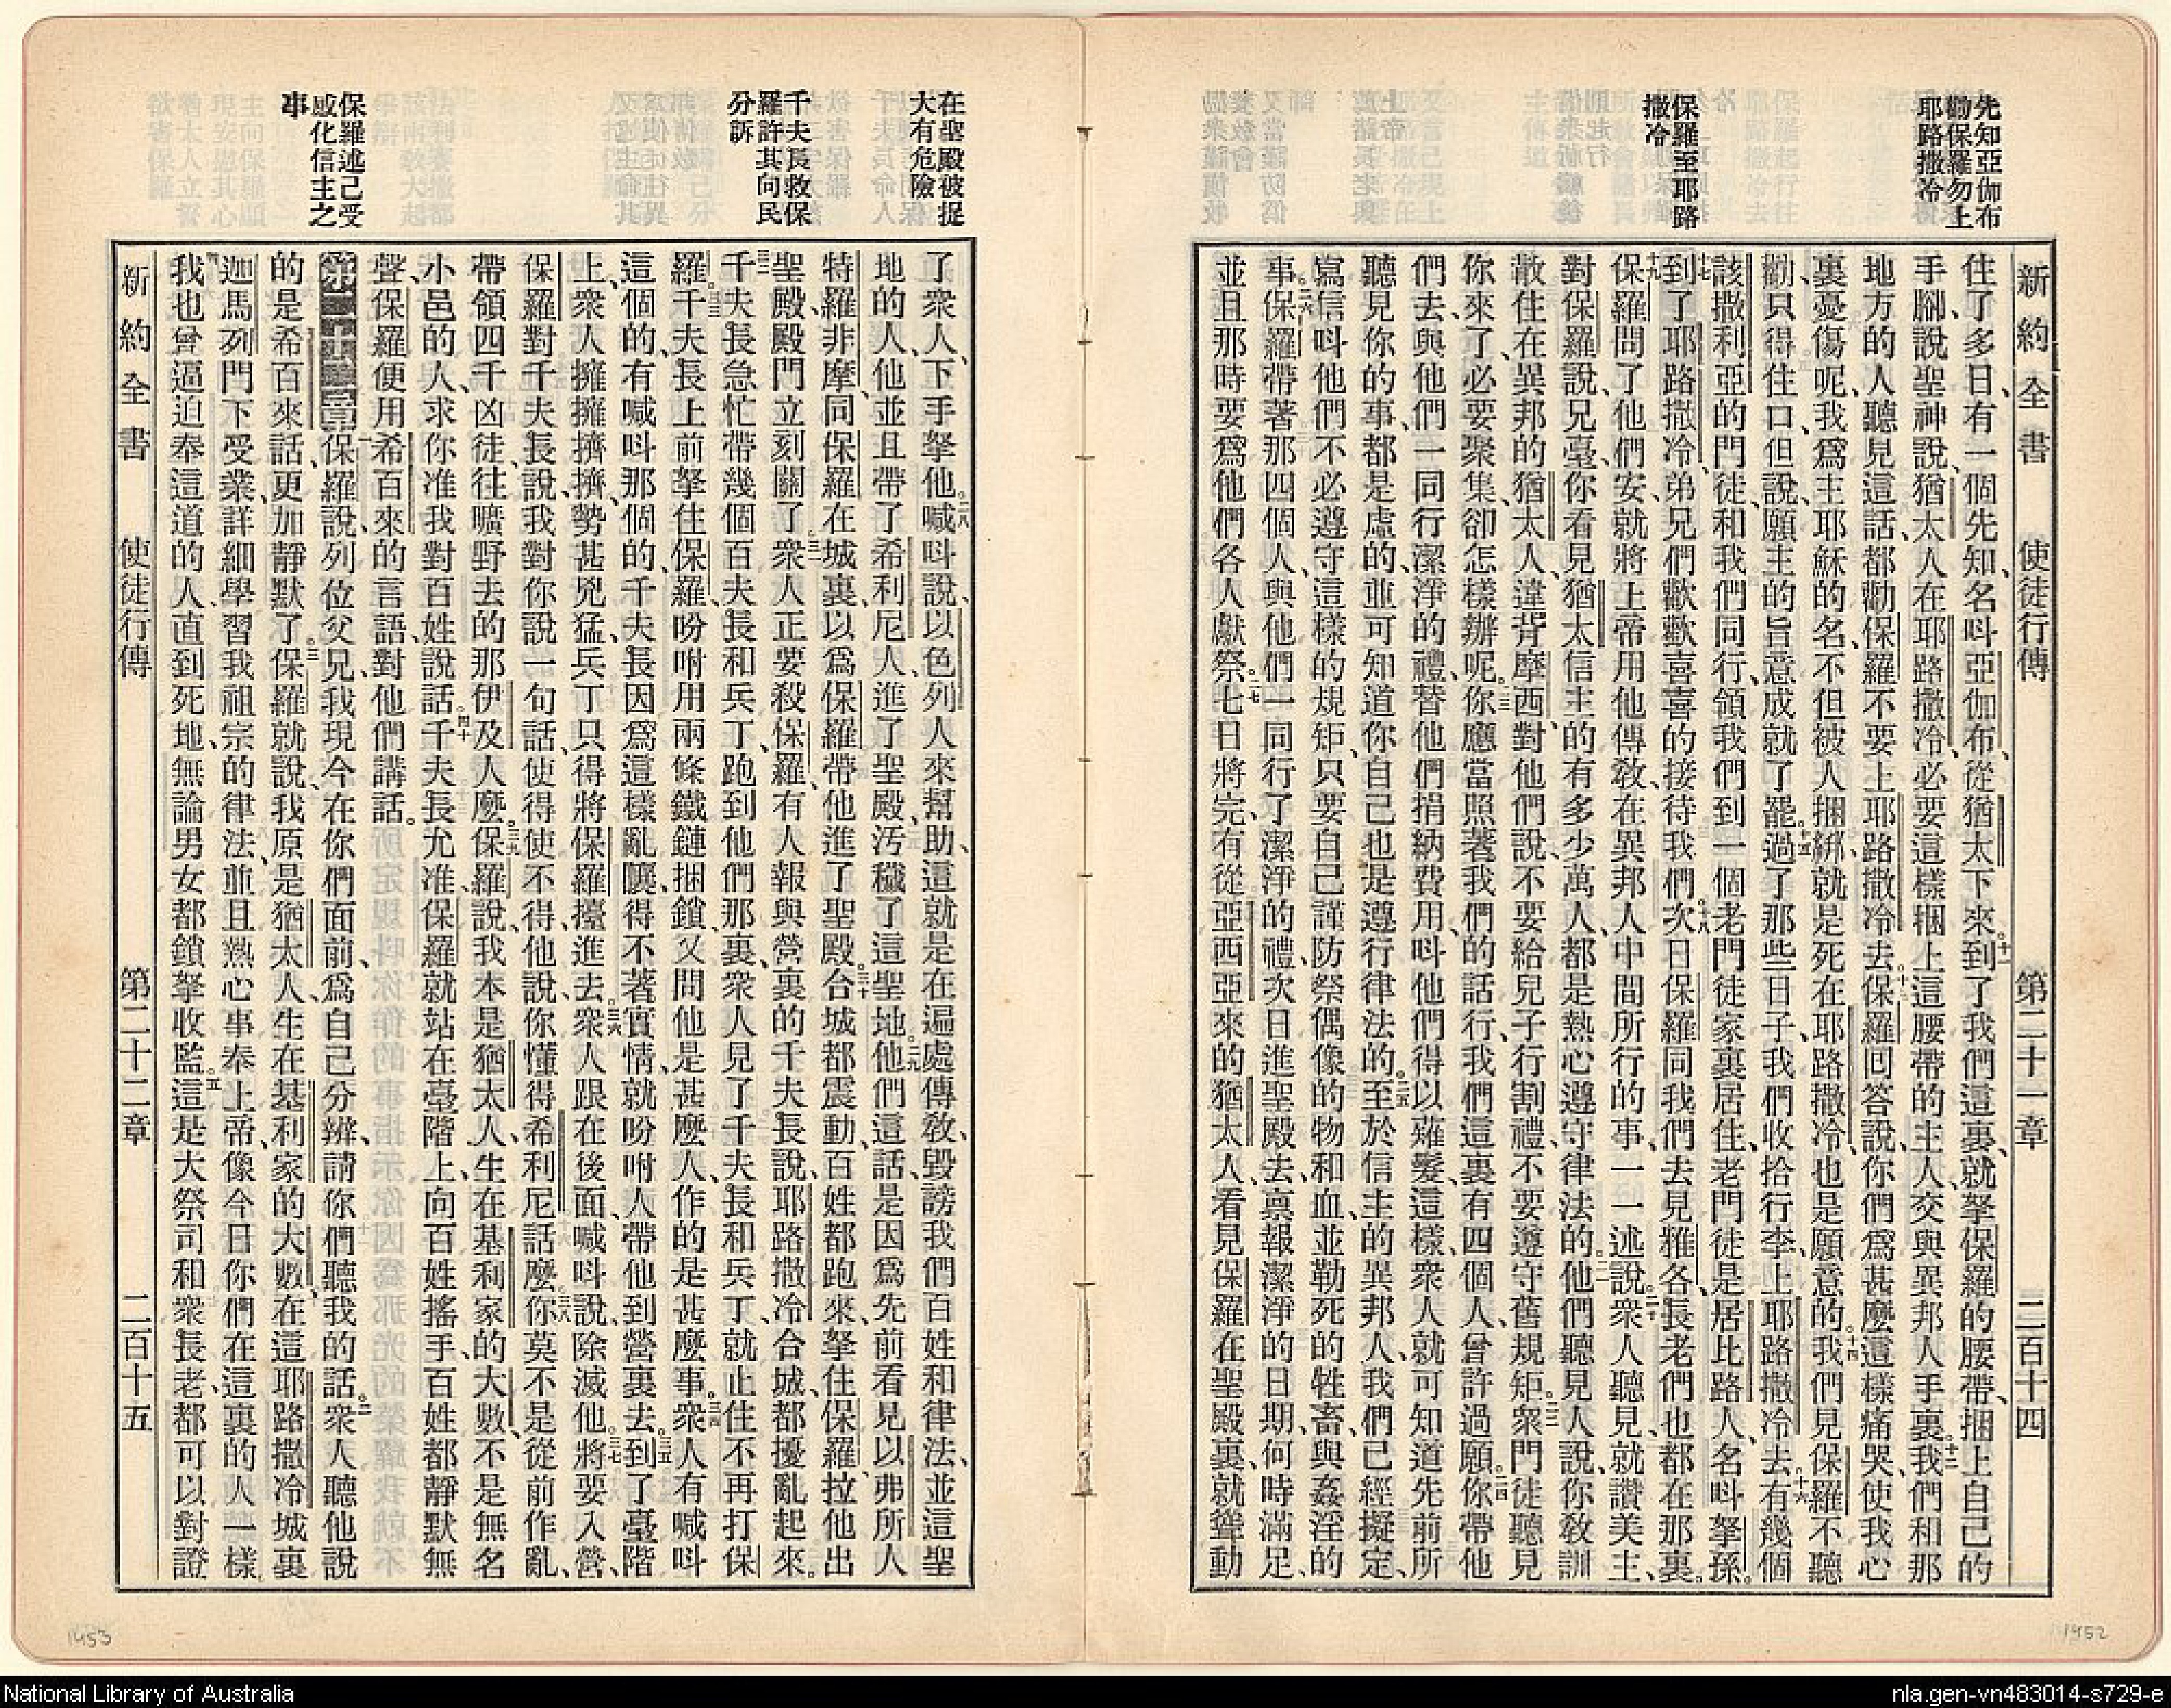 先知亞伽布
勸保羅勿上
耶路撒冷
保羅至耶路
撒冷
新約全書 使徒行傳 第二十一章 二百十四
住了多日、有一個先知、名呌亞伽布、從猶太下來。十一到了我們這裏、就拏保羅的腰帶、捆上自己的
手腳、說、聖神說、猶太人在耶路撒冷、必要這樣捆上這腰帶的主人、交與異邦人手裏。十二我們和那
地方的人、聽見這話、都勸保羅不要上耶路撒冷去。十三保羅回答說、你們爲甚麼這樣痛哭、使我心
裏憂傷呢、我爲主耶穌的名、不但被人捆綁、就是死在耶路撒冷、也是願意的。十四我們見保羅不聽
勸、只得住口、但說、願主的旨意成就了罷。十五過了那些日子、我們收拾行李、上耶路撒冷去。十六有幾個
該撒利亞的門徒、和我們同行、領我們到一個老門徒家裏居住、老門徒是居比路人、名呌拏孫。
十七到了耶路撒冷、弟兄們歡歡喜喜的接待我們。十八次日保羅同我們去見雅各、長老們也都在那裏。
十九保羅問了他們安、就將上帝用他傳教、在異邦人中間所行的事、一一述說。二十衆人聽見、就讚美主、
對保羅說、兄臺、你看見猶太信主的有多少萬人、都是熱心遵守律法的。二一他們聽見人說、你教訓
散住在異邦的猶太人、違背摩西、對他們說、不要給兒子行割禮、不要遵守舊規矩。二二衆門徒聽見
你來了、必要聚集、卻怎樣辦呢。二三你應當照著我們的話行、我們這裏有四個人、曾許過願。二四你帶他
們去、與他們一同行潔淨的禮、替他們捐納費用、呌他們得以薙髮、這樣、衆人就可知道先前所
聽見你的事、都是虛的、並可知道你自己也是遵行律法的。二五至於信主的異邦人、我們已經擬定、
寫信呌他們不必遵守這樣的規矩、只要自己謹防祭偶像的物、和血、並勒死的牲畜、與姦淫的
事。二六保羅帶著那四個人、與他們一同行了潔淨的禮、次日進聖殿去、禀報潔淨的日期、何時滿足、
並且那時要爲他們各人獻祭。二七七日將完、有從亞西亞來的猶太人、看見保羅在聖殿裏、就聳動
在聖殿被捉
大有危險
千夫長救保
羅許其向民
分訴
保羅述己受
感化信主之
事
了衆人、下手拏他。二八喊呌說、以色列人來幫助、這就是在遍處傳敎、毀謗我們百姓和律法、並這聖
地的人、他並且帶了希利尼人、進了聖殿、汚穢了這聖地。二九他們這話、是因爲先前看見以弗所人
特羅非摩、同保羅在城裏、以爲保羅帶他進了聖殿。三十合城都震動、百姓都跑來、拏住保羅、拉他出
聖殿、殿門立刻關了。三一衆人正要殺保羅、有人報與營裏的千夫長說、耶路撒冷合城都擾亂起來。
三二千夫長急忙帶幾個百夫長和兵丁、跑到他們那裏、衆人見了千夫長和兵丁、就止住不再打保
羅。三三千夫長上前拏住保羅、吩咐用兩條鐵鏈捆鎖、又問他是甚麼人、作的是甚麼事。三四衆人有喊呌
這個的、有喊呌那個的、千夫長因爲這樣亂嚷、得不著實情、就吩咐人帶他到營裏去。三五到了臺階
上、衆人擁擁擠擠、勢甚兇猛、兵丁只得將保羅擡進去。三六衆人跟在後面、喊呌說、除滅他。三七將要入營、
保羅對千夫長說、我對你說一句話、使得使不得、他說、你懂得希利尼話麼。三八你莫不是從前作亂、
帶領四千凶徒往曠野去的那伊及人麼。三九保羅說、我本是猶太人、生在基利家的大數、不是無名
小邑的人、求你准我對百姓說話。四十千夫長允准、保羅就站在臺階上、向百姓搖手、百姓都靜默無
聲、保羅便用希百來的言語、對他們講話。
第二十二章一保羅說、列位父兄、我現今在你們面前、爲自己分辨、請你們聽我的話。二衆人聽他說
的是希百來話、更加靜默了。三保羅就說、我原是猶太人、生在基利家的大數、在這耶路撒冷城裏
迦馬列門下受業、詳細學習我祖宗的律法、並且熱心事奉上帝、像今日你們在這裏的人一樣。
四我也曾逼迫奉這道的人、直到死地、無論男女、都鎖拏收監。五這是大祭司和衆長老、都可以對證
新約全書 使徒行傳 第二十二章 二百十五
1453
1452
National Library of Australia
nla.gen-vn483014-s729-e